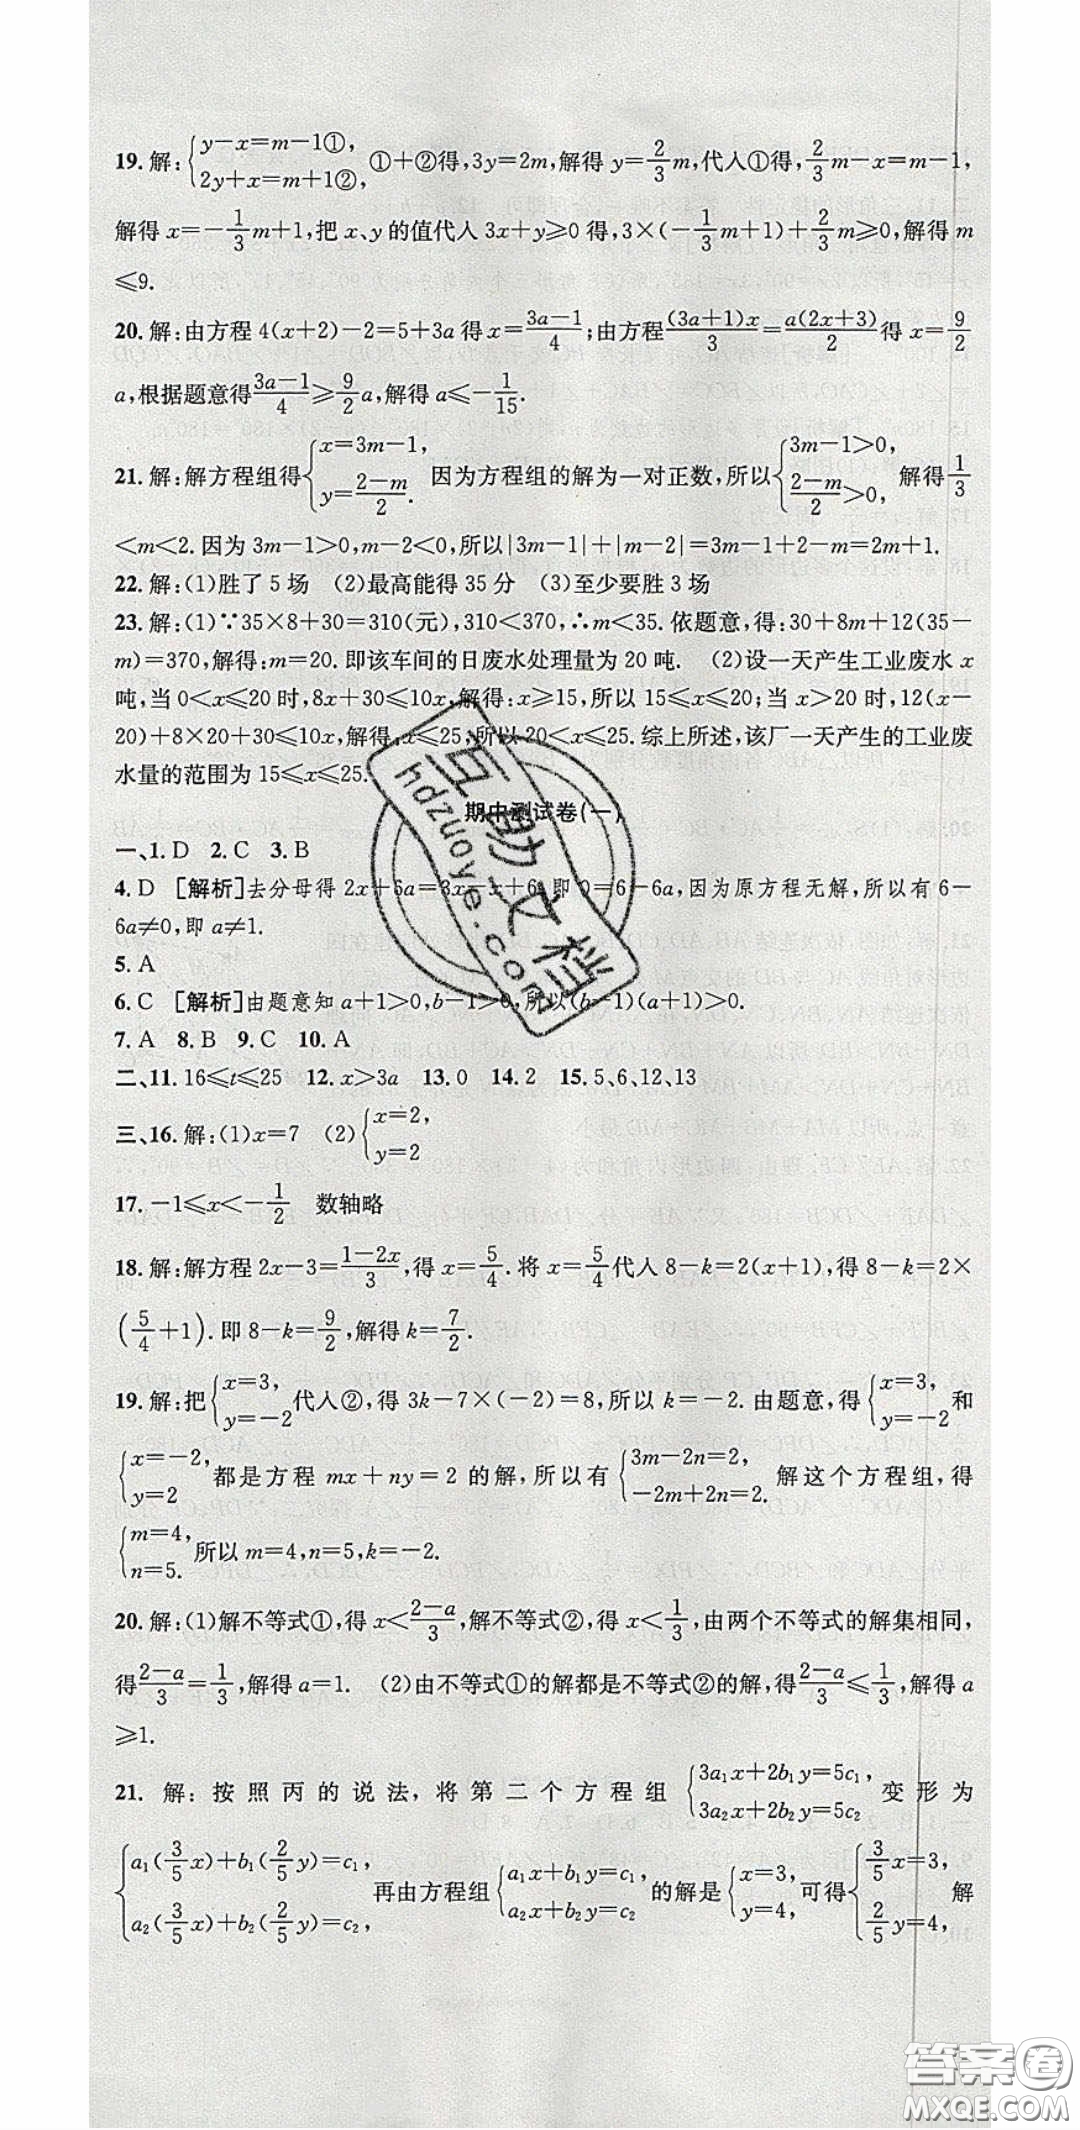 19. 解:{y-x=m-1①, 2y+x=m+1②, ①+②得,3y=2m,解得 y=2/3m,代入①得,2/3m-x=m-1,
解得 x=-1/3m+1,把 x、y 的值代入 3x+y≥0 得,3×(-1/3m+1)+2/3m≥0,解得 m
≤9.
20. 解:由方程 4(x+2)-2=5+3a 得 x=(3a-1)/4;由方程(3a+1)x/3=a(2x+3)/2 得 x=9/2
a,根据题意得(3a-1)/4≥9/2a,解得 a≤-1/15.
21. 解:解方程组得{x=3m-1, y=(2-m)/2. 因为方程组的解为一对正数,所以{3m-1>0, (2-m)/2>0, 解得1/3
<m<2. 因为 3m-1>0,m-2<0,所以|3m-1|+|m-2|=3m-1+2-m=2m+1.
22. 解:(1)胜了 5 场 (2)最高能得 35 分 (3)至少要胜 3 场
23. 解:(1)∵35×8+30=310(元),310<370,∴m<35. 依题意,得:30+8m+12(35-
m)=370,解得:m=20. 即该车间的日废水处理量为 20 吨. (2)设一天产生工业废水 x
吨,当 0<x≤20 时,8x+30≤10x,解得:x≥15,所以 15≤x≤20;当 x>20 时,12(x-
20)+8×20+30≤10x,解得:x≤25,所以 20<x≤25. 综上所述,该厂一天产生的工业废
水量的范围为 15≤x≤25.
期中测试卷(一)
一、1. D 2. C 3. B
4. D [解析]去分母得 2x+6a=3x-x+6,即 0=6-6a,因为原方程无解,所以有 6-
6a≠0,即 a≠1.
5. A
6. C [解析]由题意知 a+1>0,b-1>0,所以(b-1)(a+1)>0.
7. A 8. B 9. C 10. A
二、11. 16≤t≤25 12. x>3a 13. 0 14. 2 15. 5、6、12、13
三、16. 解:(1)x=7 (2){x=2, y=2
17. -1≤x<-1/2 数轴略
18. 解:解方程 2x-3=(1-2x)/3,得 x=5/4. 将 x=5/4代入 8-k=2(x+1),得 8-k=2×
(5/4+1). 即 8-k=9/2,解得 k=7/2.
19. 解:把{x=3, y=-2 代入②,得 3k-7×(-2)=8,所以 k=-2. 由题意,得{x=3, y=-2 和
{x=-2, y=2 都是方程 mx+ny=2 的解,所以有{3m-2n=2, -2m+2n=2. 解这个方程组,得
{m=4, n=5. 所以 m=4,n=5,k=-2.
20. 解:(1)解不等式①,得 x<(2-a)/3,解不等式②,得 x<1/3,由两个不等式的解集相同,
得(2-a)/3=1/3,解得 a=1. (2)由不等式①的解都是不等式②的解,得(2-a)/3≤1/3,解得 a
≥1.
21. 解:按照丙的说法,将第二个方程组 {3a₁x+2b₁y=5c₁, 3a₂x+2b₂y=5c₂ 变形为
{a₁(3/5x)+b₁(2/5y)=c₁, a₂(3/5x)+b₂(2/5y)=c₂, 再由方程组{a₁x+b₁y=c₁, a₂x+b₂y=c₂ 的解是{x=3, y=4, 可得{3/5x=3, 2/5y=4, 解
互助文档
hdzuoye.com
答案圈
MXQE.COM